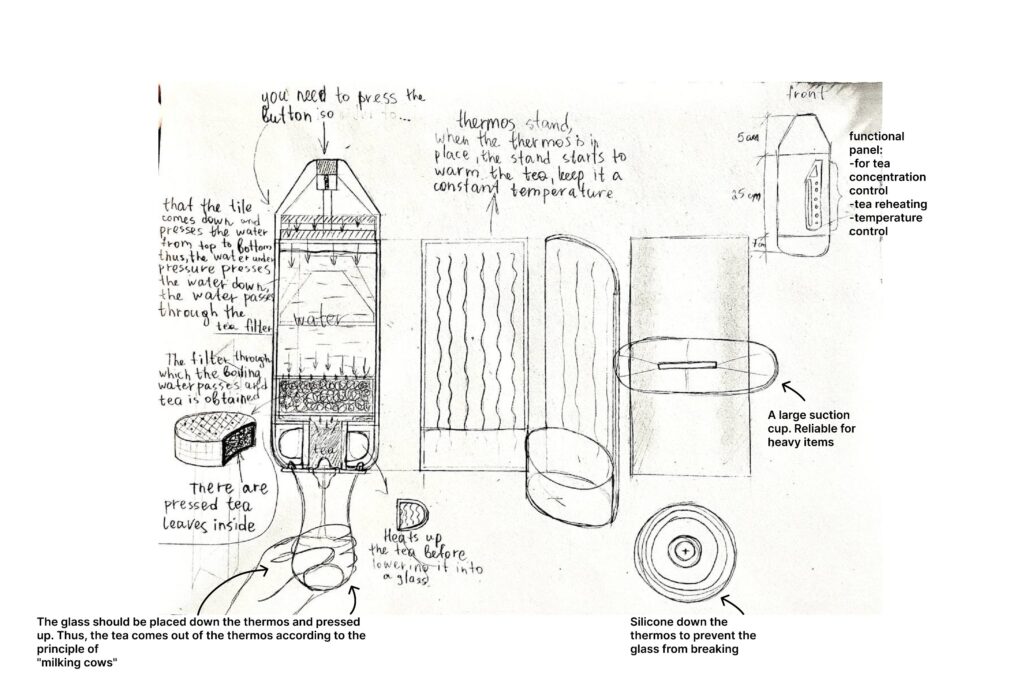 you need to press the
button so
that the tile
comes down and
presses the water
from top to bottom
thus, the water under
pressure presses
the water down,
the water passes
through the
tea filter
The filter through
which the boiling
water passes and
tea is obtained
There are
pressed tea
leaves inside
water
tea
thermos stand,
when the thermos is in
place, the stand starts to
warm the tea, keep it a
constant temperature
Heats up
the tea before
lowering it into
a glass
front
5 cm
25 cm
functional
panel:
-for tea
concentration
control
-tea reheating
-temperature
control
A large suction
cup. Reliable for
heavy items
The glass should be placed down the thermos and pressed
up. Thus, the tea comes out of the thermos according to the
principle of
"milking cows"
Silicone down the
thermos to prevent the
glass from breaking